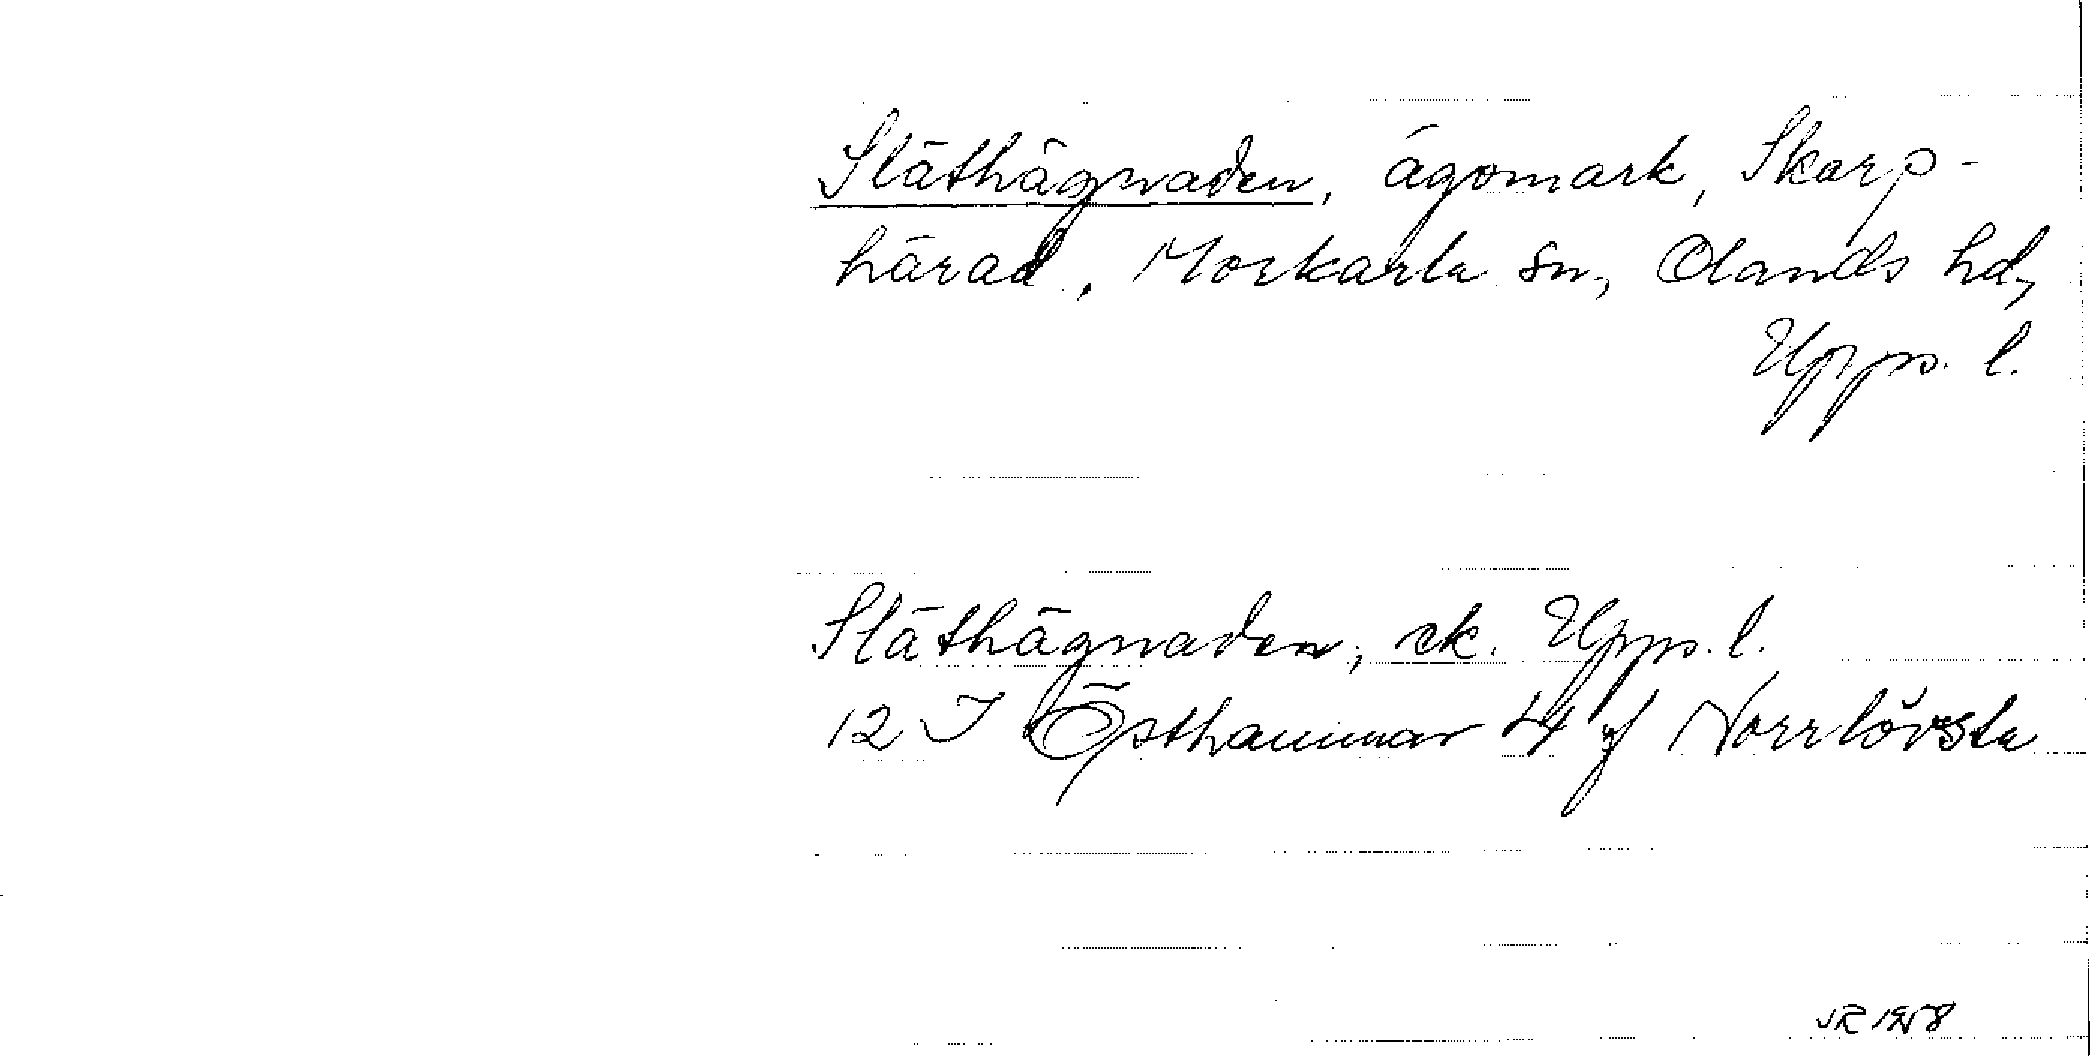 Släthägnaden, ägomark, Skarp-
härad, Morkarla sn, Olands hd,
Upps. l.
Släthägnaden, ek. Upps. l.
12 I Östhammar 4 f Norrlövsta